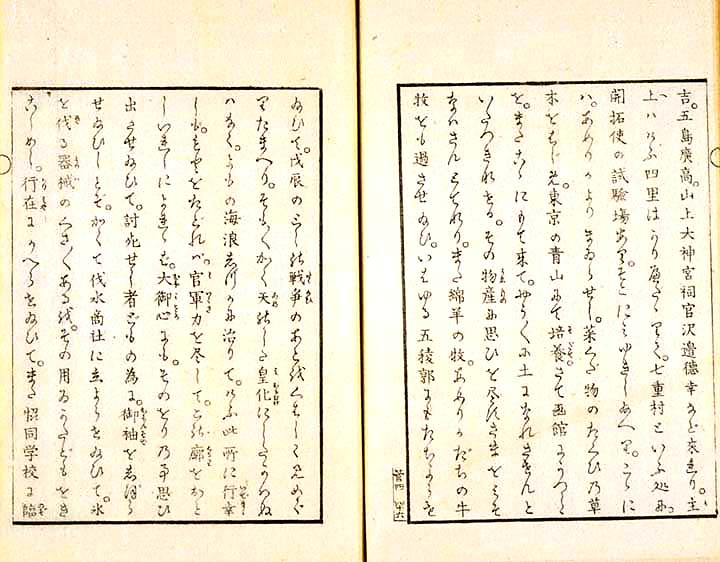 吉。五島廣高。山上大神宮祠官沢邉德幸など来れり。主
上ハけふ四里はかり隔たりて。七重村といふ処に。
開拓使の試驗場あり。そこにみゆきしたまへり。こゝに
ハ。あめりかよりまゐらせし。菜くだ物のたぐひ乃草
木をはじめ。東京の青山にて培養させて凾館にうつし
を。またこゝにもて来て。やう〳〵に土になれさせんと
いたつきれたる。その物産に思ひを尽したるさまをミそ
なハさんとてなり。また綿羊の牧。あめりかだちの牛
牧をも過させ給ひ。いはゆる五稜郭にもたちよらせ
給ひて。戊辰のとしの戦争のあとをくはしくみめぐ
りたまへり。そも〳〵かく天の下皇化にしたがはぬ
ハなく。よもの海浪しづかに治りて。けふ此所に行幸
しも。もとをたどれバ。官軍力を尽して。この廓をおと
しいれしによりてぞ。大御心にも。そのをり乃事思ひ
出させ給ひて。討死せし者どもの為に。御袖をしぼら
せ給ひしとぞ。かくて伐氷商社に立よらせ給ひて。氷
を伐る器械のくさ〳〵あるを。その用ゐかたどもをき
こしめし。行在にかへらせ給ひて。また 同学校に臨